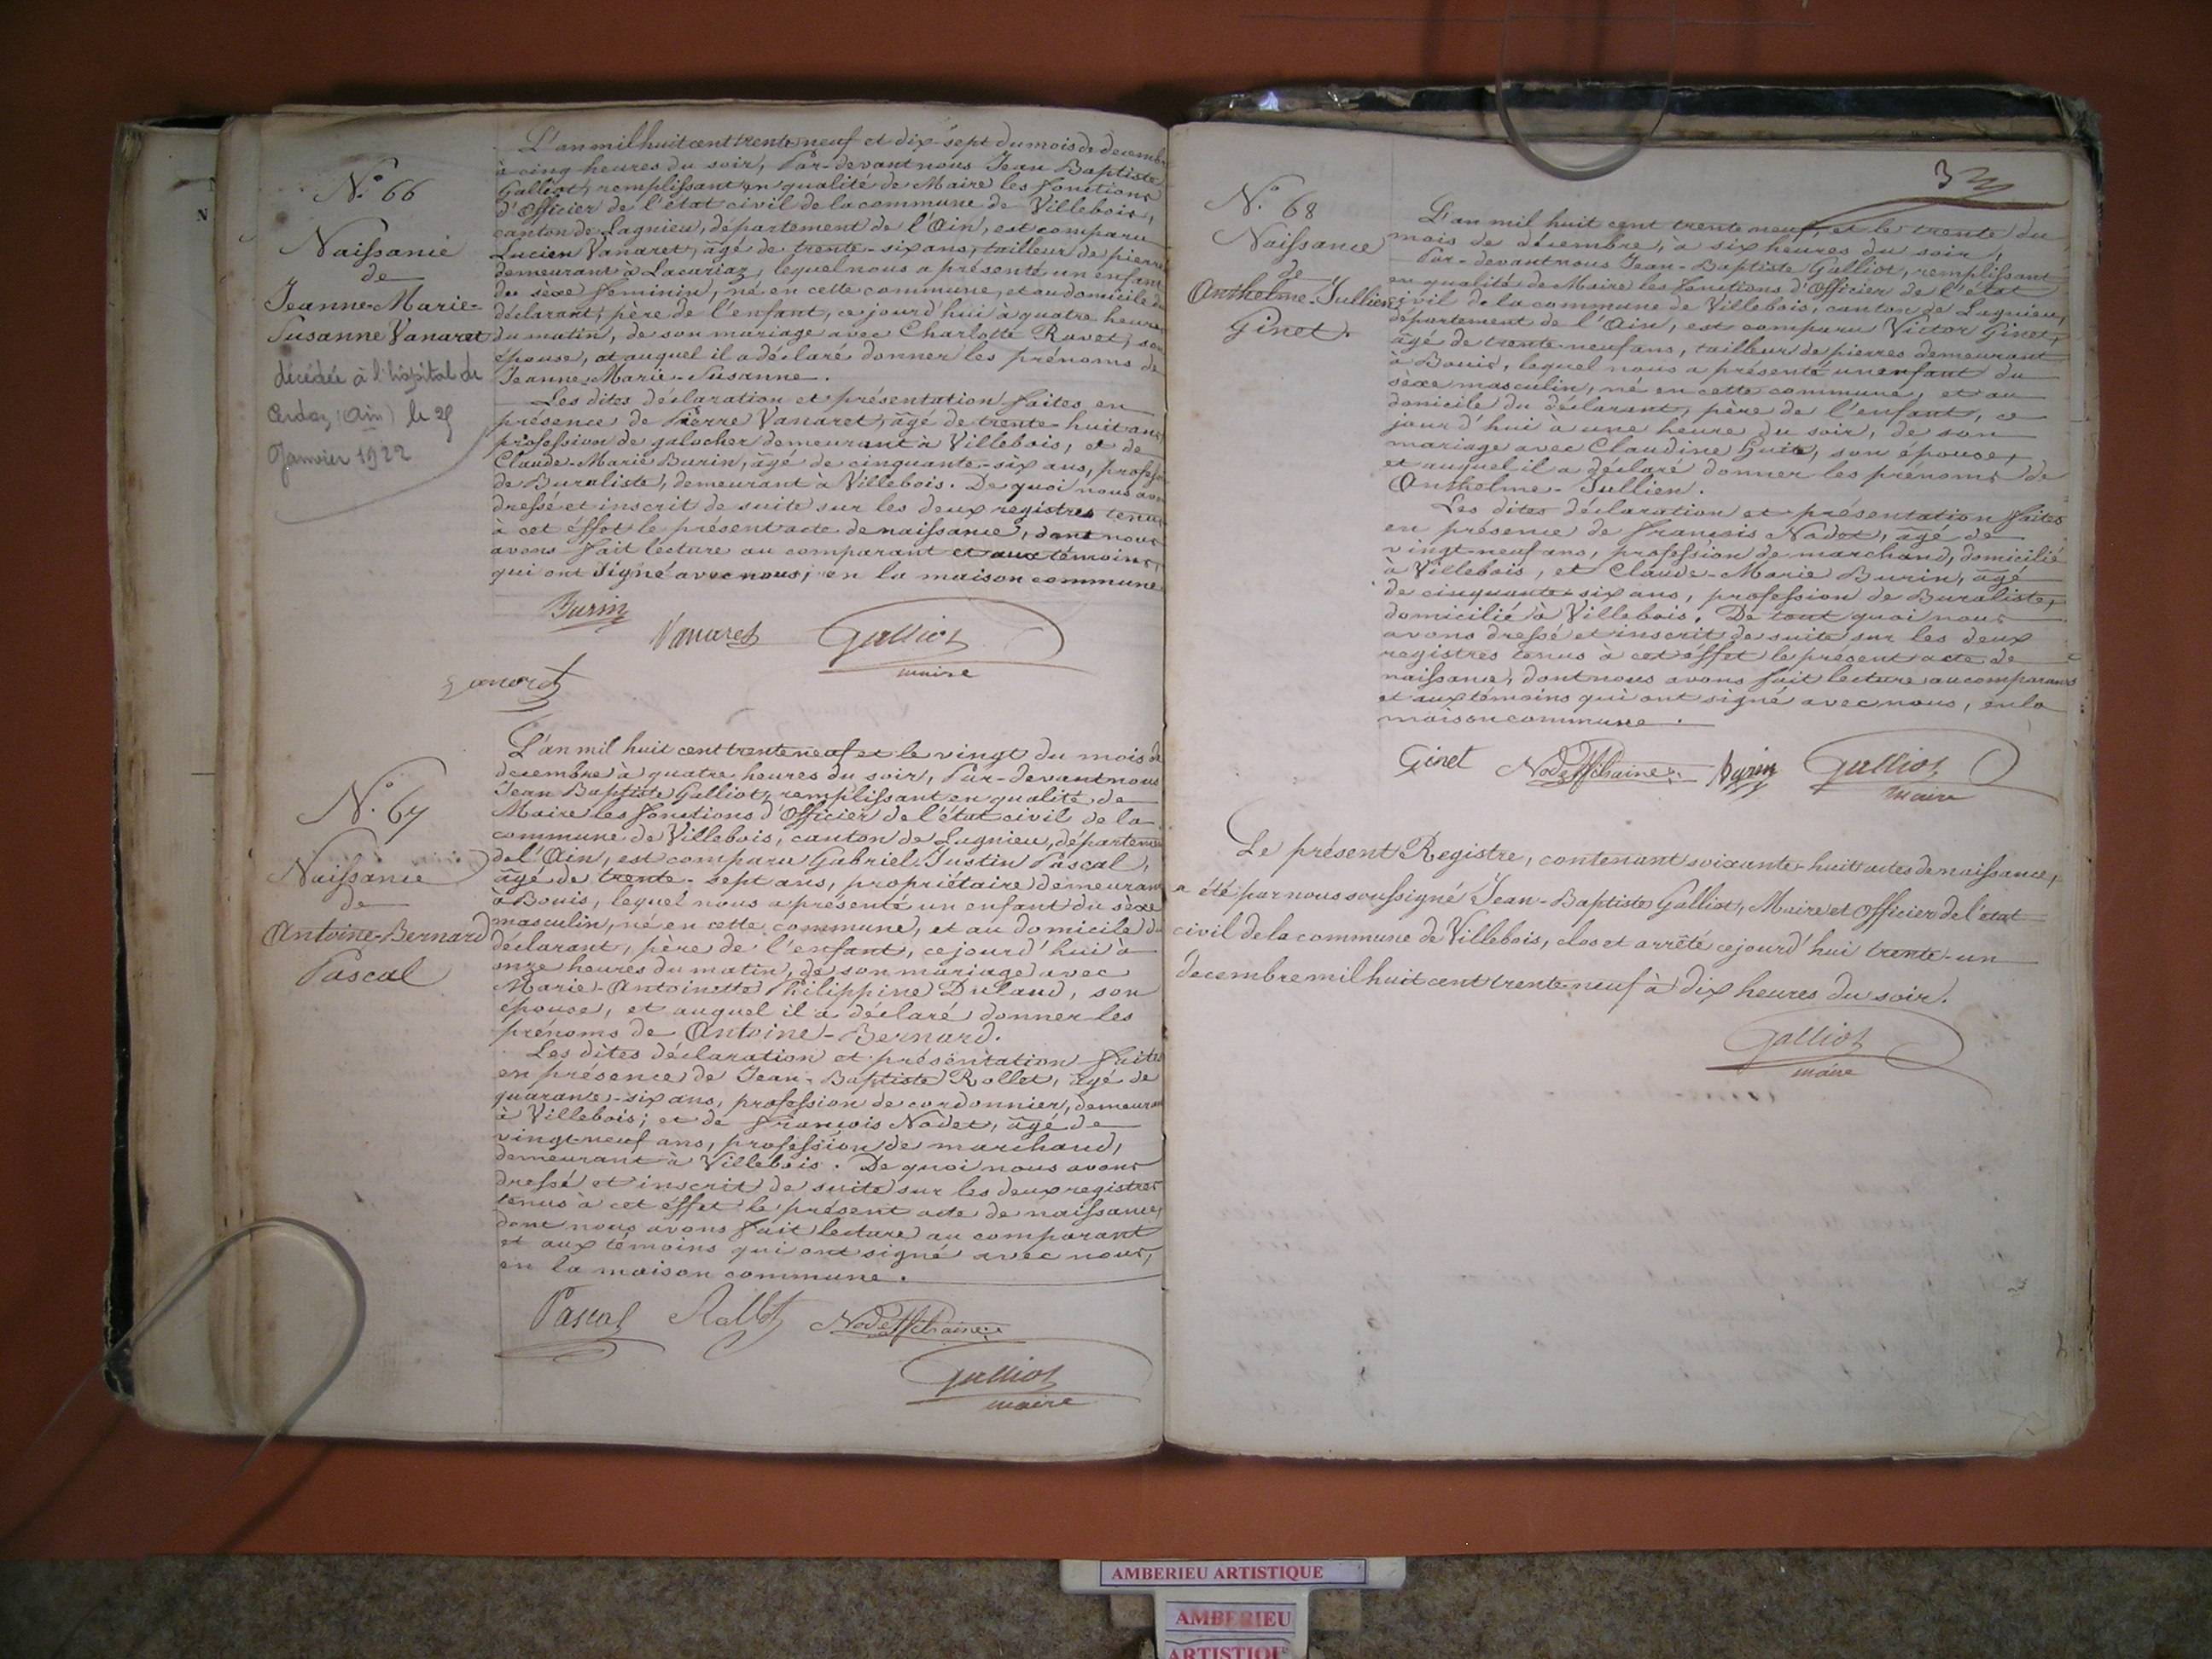 N.° 66
Naissance
de
Jeanne-Marie-
Susanne Vanaret
décédée à l'hôpital de
(Ain) le 25
Janvier 1922
L'an mil huit cent trente neuf et dix-sept du mois de decemb
à cinq heures du soir, Par-devant nous Jean Baptiste
Galliot, remplissant en qualité de Maire les fonctions
d'officier de l'état civil de la commune de Villebois,
canton de Lagnieu, département de l'Ain, est comparu
Lucien Vanaret, âgé de trente-six ans, tailleur de pierre
demeurant à Lacariaz, lequel nous a présenté un enfant
du sèxe feminin, né en cette commune, et au domicile du
déclarant, père de l'enfant, ce jourd'hui à quatre heures
du matin, de son mariage avec Charlotte Ravet, son
épouse, et auquel il a déclaré donner les prénoms de
Jeanne-Marie-Susanne.
Les dites déclaration et présentation faites en
présence de Pierre Vanaret, âgé de trente-huit ans,
profession de galocher demeurant à Villebois, et de
Claude-Marie Burin, âgé de cinquante-six ans, profession
de Buraliste, demeurant à Villebois. De quoi nous avons
dressé et inscrit de suite sur les deux registres tenus
à cet éffet le présent acte de naissance, dont nous
avons fait lecture au comparant et aux témoins,
qui ont signé avec nous, en la maison commune
Burin
Vanaret Galliot
maire
Vanaret
N.° 67
Naissance
de
Antoine-Bernard
Pascal
L'an mil huit cent trente neuf et le vingt du mois de
decembre à quatre heures du soir, Par-devant nous
Jean Baptiste Galliot, remplissant en qualité de
Maire les fonctions d'Officier de l'état civil de la
commune de Villebois, canton de Lagnieu, départeme
de l'Ain, est comparu Gabriel Justin Pascal,
âgé de trente-sept ans, propriétaire demeurant
à Bouis, lequel nous a présenté un enfant du sèxe
masculin, né en cette commune, et au domicile du
déclarant, père de l'enfant, ce jourd'hui à
onze heures du matin, de son mariage avec
Marie-Antoinette Philippine Dulaud, son
épouse, et auquel il a déclaré donner les
prénoms de Antoine-Bernard.
Les dites déclaration et présentation faites
en présence de Jean-Baptiste Rollet, âgé de
quarante-six ans, profession de cordonnier, demeurant
à Villebois; et de françois Nodet, âgé de
vingt neuf ans, profession de marchand,
demeurant à Villebois. De quoi nous avons
dressé et inscrit de suite sur les deux registres
tenus à cet éffet le présent acte de naissance,
dont nous avons fait lecture au comparant
et aux témoins qui ont signé avec nous,
en la maison commune.
Pascal Rollet Nodet
Galliot
maire
N.° 68
Naissance
de
Anthelme-Jullien
Ginet.
L'an mil huit cent trente neuf, et le trente du
mois de décembre, à six heures du soir,
Par-devant nous Jean-Baptiste Galliot, remplissant
en qualité de Maire les fonctions d'Officier de l'état
civil de la commune de Villebois, canton de Lagnieu,
département de l'Ain, est comparu Victor Ginet,
âgé de trente-neuf ans, tailleur de pierres demeurant
à Bouis, lequel nous a présenté un enfant du
sèxe masculin, né en cette commune, et au
domicile du déclarant, père de l'enfant, ce
jourd'hui à une heure du soir, de son
mariage avec Claudine Huite, son épouse,
et auquel il a déclaré donner les prénoms de
Anthelme-Jullien.
Les dites déclaration et présentation faites
en présence de françois Nodet, âgé de
vingt-neuf ans, profession de marchand, domicilié
à Villebois, et Claude-Marie Burin, âgé
de cinquante-six ans, profession de Buraliste,
domicilié à Villebois. De tout quoi nous
avons dressé et inscrit de suite sur les deux
registres tenus à cet éffet le présent acte de
naissance, dont nous avons fait lecture au comparant
et aux témoins qui ont signé avec nous, en la
maison commune.
Ginet Nodet Burin Galliot
maire
Le présent Registre, contenant soixante-huit actes de naissance,
a été par nous soussigné Jean-Baptiste Galliot, Maire et officier de l'état
civil de la commune de Villebois, clos et arrêté ce jourd'hui trente-un
decembre mil huit cent trente neuf à dix heures du soir.
Galliot
maire
AMBERIEU ARTISTIQUE
AMBERIEU
ARTISTIQUE